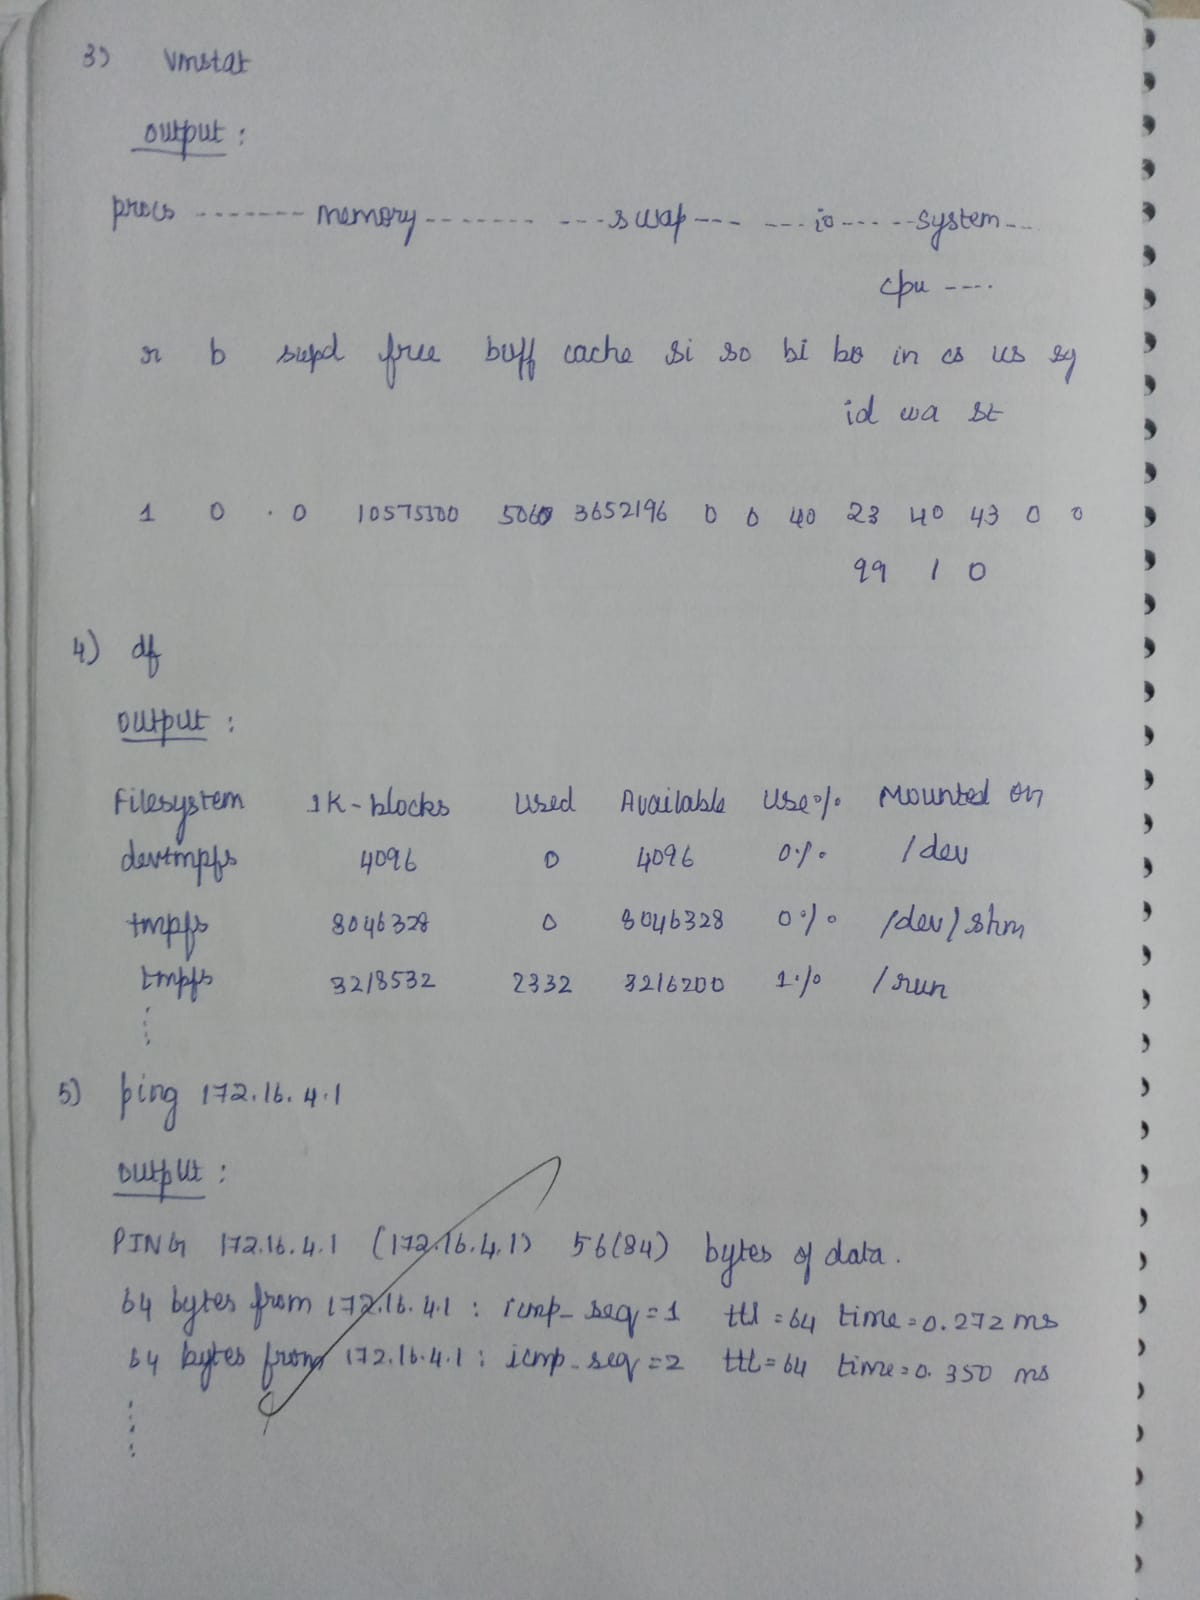 3) vmstat
output :
procs ------- memory ------- ---swap--- ---io-----system---
cpu ----
r b swpd free buff cache si so bi bo in cs us sy
id wa st
1 0 0 10575300 5060 3652196 0 0 40 23 40 43 0 0
99 1 0
4) df
output :
Filesystem 1K-blocks Used Available Use% Mounted on
devtmpfs 4096 0 4096 0% /dev
tmpfs 8046328 0 8046328 0% /dev/shm
tmpfs 3218532 2332 3216200 1% /run
5) ping 172.16.4.1
output :
PING 172.16.4.1 (172.16.4.1) 56(84) bytes of data.
64 bytes from 172.16.4.1 : icmp_seq=1 ttl=64 time=0.272 ms
64 bytes from 172.16.4.1 : icmp_seq=2 ttl=64 time=0.350 ms